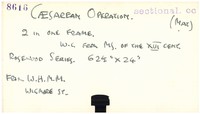 8646 CÆSAREAN OPERATION.
(MAX)
2 IN ONE FRAME.
W.C. FROM MS. OF THE XIII CENT.
ROSEWOOD SERIES. 62½" X 24"
FROM W.H.M.M.
WIGMORE ST.